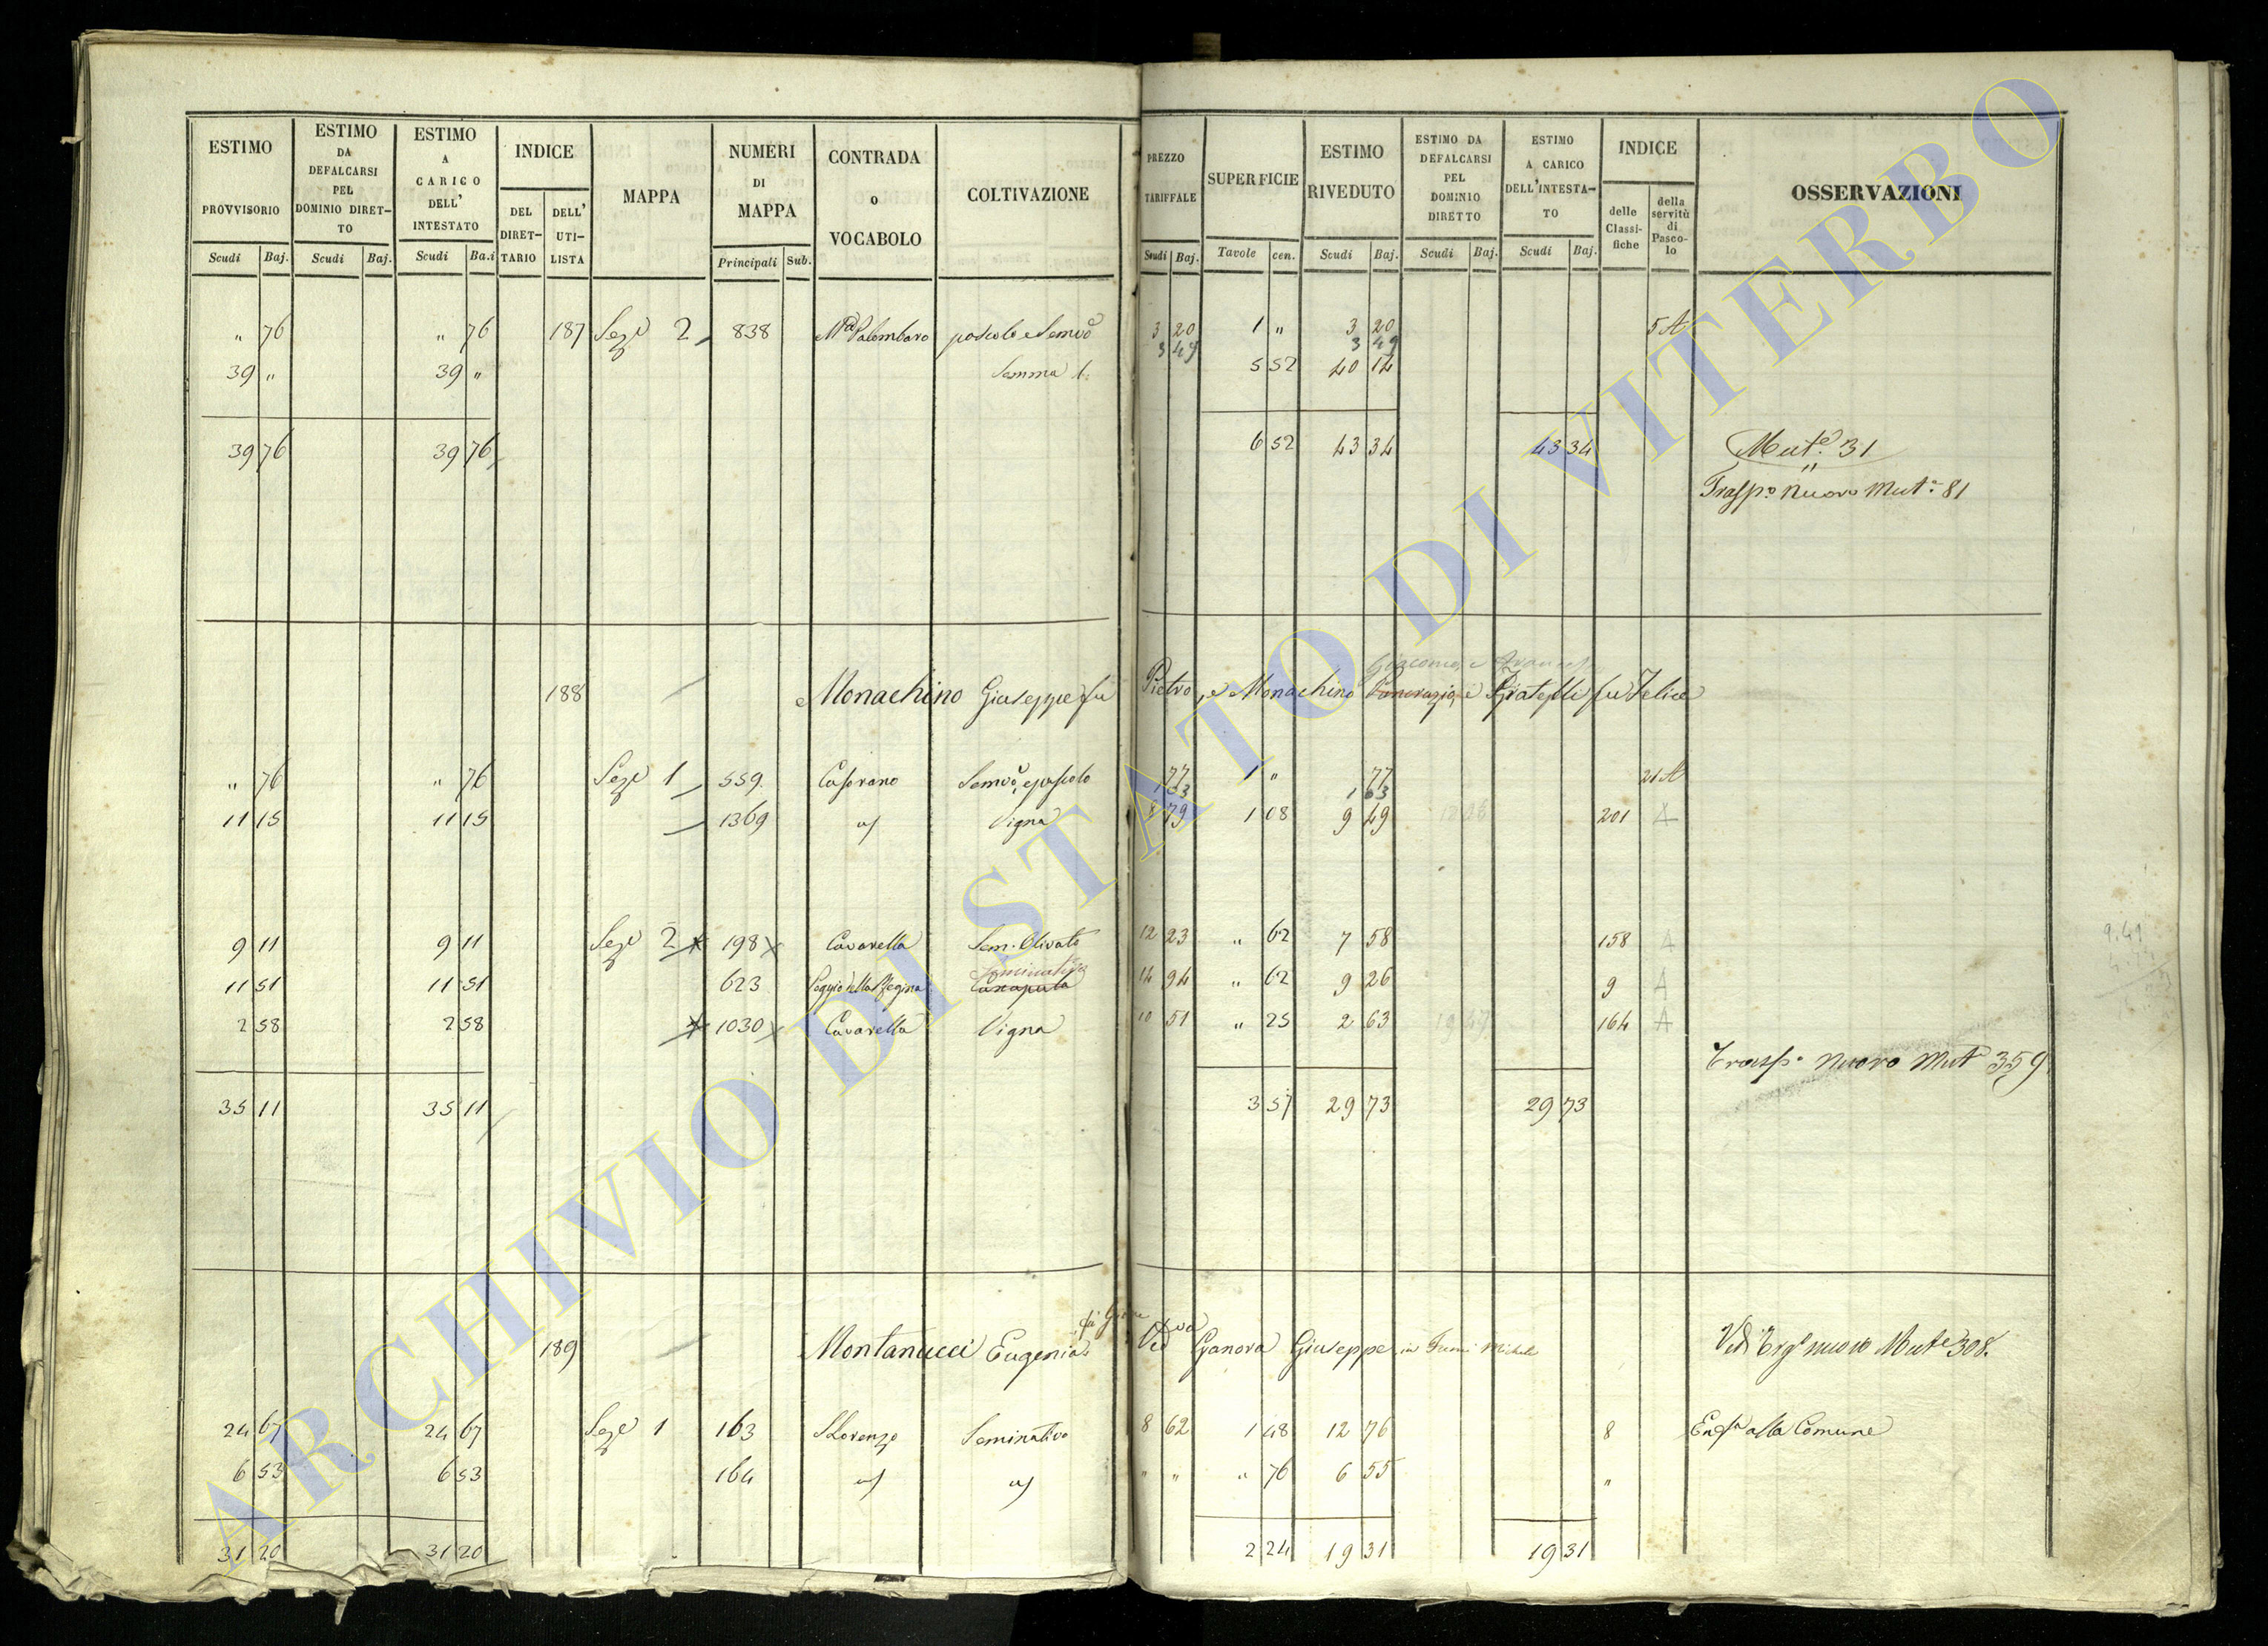 ESTIMO PROVVISORIO Scudi Baj.
ESTIMO DA DEFALCARSI PEL DOMINIO DIRETTO Scudi Baj.
ESTIMO A CARICO DELL' INTESTATO Scudi Ba.i
INDICE DEL DIRETTARIO DELL' UTILISTA
MAPPA
NUMERI DI MAPPA Principali Sub.
CONTRADA o VOCABOLO
COLTIVAZIONE
PREZZO TARIFFALE Scudi Baj.
SUPERFICIE Tavole cen.
ESTIMO RIVEDUTO Scudi Baj.
ESTIMO DA DEFALCARSI PEL DOMINIO DIRETTO Scudi Baj.
ESTIMO A CARICO DELL'INTESTATO Scudi Baj.
INDICE delle Classifiche della servitù di Pascolo
OSSERVAZIONI
" 76 " 76 187 Seze 2 838 Palombaro pascolo e Semvo 3 20 1 " 3 20 5 A
3 49 3 49
39 " 39 " Somma 5 52 40 14
39 76 39 76 6 52 43 34 43 34 Mute 31
"
Trasp.o Nuovo Mut.e 81
Giacomo e
188 Monachino Giuseppe fu Pietro, e Monachino Pancrazio, e Fratelli fu Felice
" 76 " 76 Seze 1 559 Casorano Semvo e pascolo 77 1 " 77 21 A
1 63 1 63
11 15 11 15 1369 " Vigna 8 79 1 08 9 49 201 A
9 11 9 11 Seze 2 198 Cavarella Sem. Olivato 12 23 " 62 7 58 158 A
9.49
Seminativo
11 51 11 51 623 Poggio della Regina Canapula 14 94 " 62 9 26 9 A
2 58 2 58 1030 Cavarella Vigna 10 51 " 25 2 63 164 A
Trasp.o Nuovo Mut 359
35 11 35 11 3 57 29 73 29 73
189 Montanucci Eugenia Ved Ganova Giuseppe in Michele Vedi nuovo Mute 308.
24 67 24 67 Seze 1 163 S Lorenzo Seminativo 8 62 1 48 12 76 8 alla Comune
6 53 6 53 164 " " " " " 76 6 55 "
31 20 31 20 2 24 19 31 19 31
ARCHIVIO DI STATO DI VITERBO